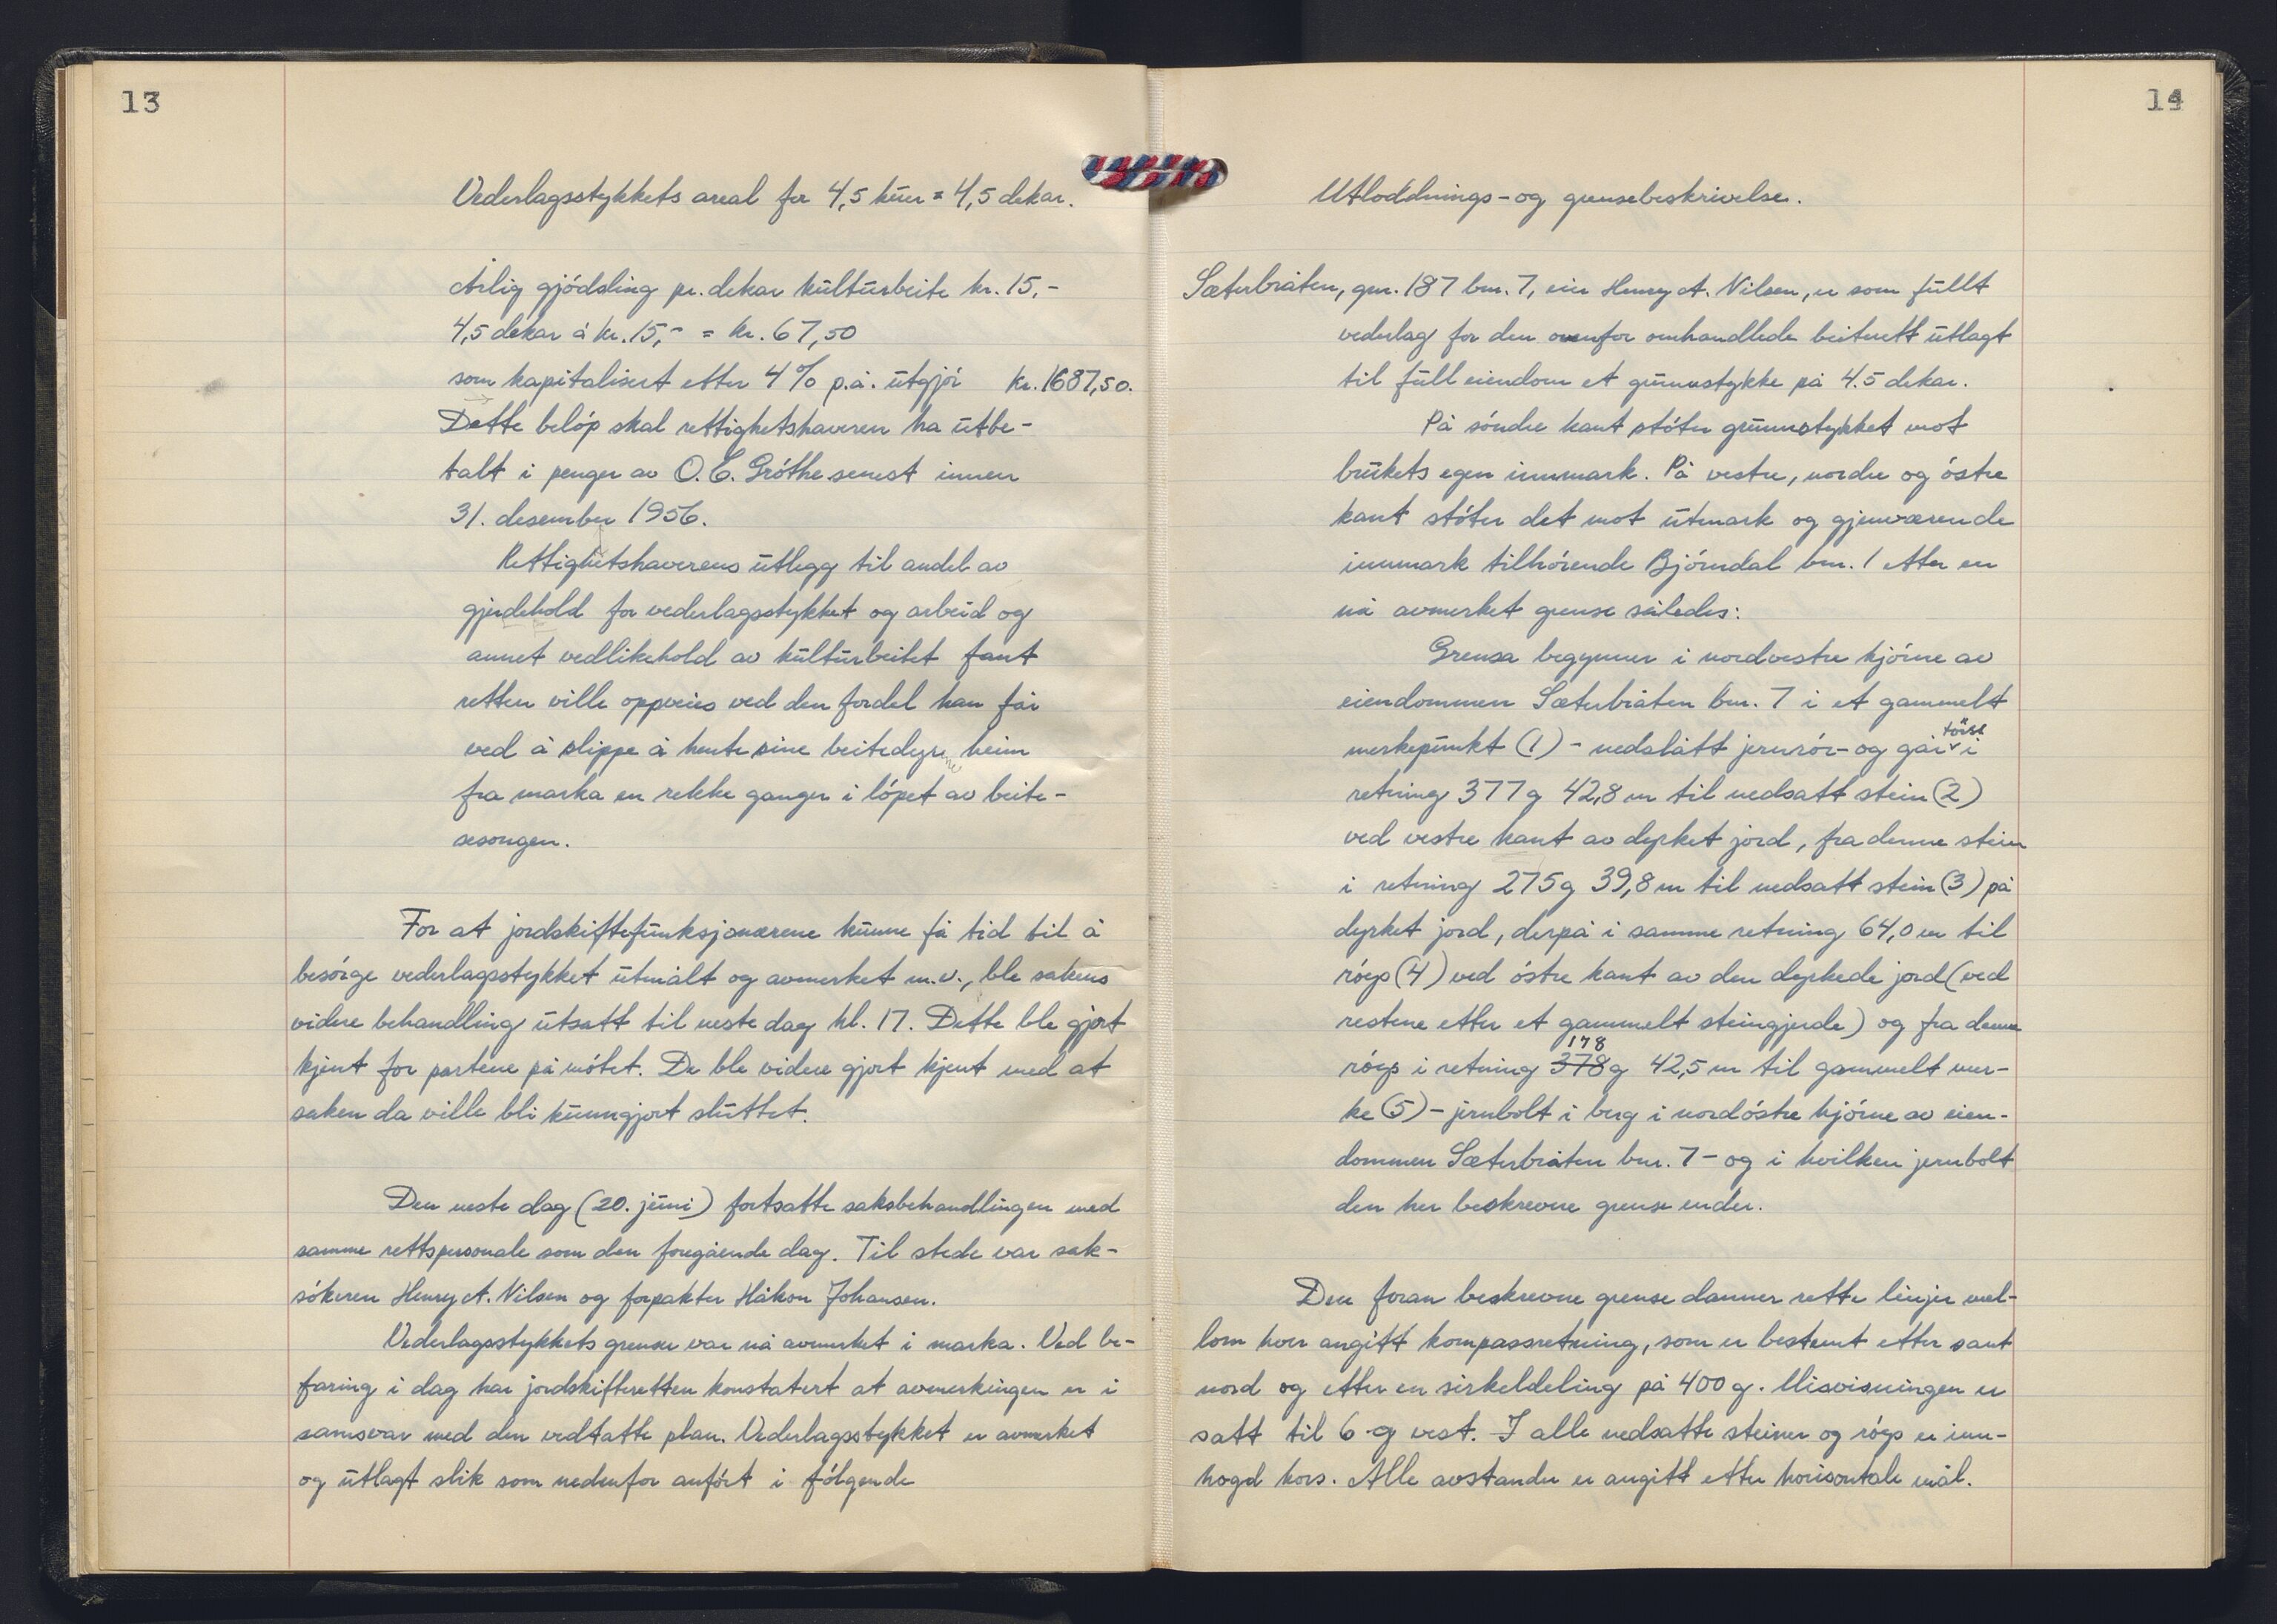 13
Vederlagsstykkets areal for 4,5 kuer = 4,5 dekar.
Årlig gjódsling pr. dekar kulturbeite kr. 15,-
4,5 dekar á kr. 15,- = kr. 67,50
som kapitalisert etter 4% p.a. utgjór kr. 1687,50.
Dette beløp skal rettighetshaveren ha utbe-
talt i penger av O. C. Gróthe senest innen
31. desember 1956.
Rettighetshaverens utlegg til andel av
gjerdehold for vederlagsstykket og arbeid og
annet vedlikehold av kulturbeitet fant
retten ville oppveies ved den fordel han får
ved å slippe å hente sine beitedyr heim
fra marka en rekke ganger i lópet av beite-
sesongen.
For at jordskiftefunksjonærene kunne få tid til å
besórge vederlagsstykket utmålt og avmerket m.v., ble sakens
videre behandling utsatt til neste dag kl. 17. Dette ble gjort
kjent for partene på mótet. De ble videre gjort kjent med at
saken da ville bli kunngjort sluttet.
Den neste dag (20. juni) fortsatte saksbehandlingen med
samme rettspersonale som den foregående dag. Til stede var sak-
sókeren Henry A. Nilsen og forpakter Håkon Johansen.
Vederlagsstykkets grense var nå avmerket i marka. Ved be-
faring i dag har jordskifteretten konstatert at avmerkingen er i
samsvar med den vedtatte plan. Vederlagsstykket er avmerket
og utlagt slik som nedenfor anfórt i fólgende
14
Utloddnings- og grensebeskrivelse.
Sæterbråten, gnr. 187 bnr. 7, eier Henry A. Nilsen, er som fullt
vederlag for den ovenfor omhandlede beiterett utlagt
til full eiendom et grunnstykke på 4.5 dekar.
På søndre kant stóter grunnstykket mot
brukets egen innmark. På vestre, nordre og óstre
kant stóter det mot utmark og gjenværende
innmark tilhórende Bjórndal bnr. 1 etter en
nå avmerket grense således:
Grensa begynner i nordvestre hjórne av
eiendommen Sæterbråten bnr. 7 i et gammelt
merkepunkt (1) - nedslått jernrór - og går først i
retning 377 g 42,8 m til nedsatt stein (2)
ved vestre kant av dyrket jord, fra denne stein
i retning 275 g 39,8 m til nedsatt stein (3) på
dyrket jord, derpå i samme retning 64,0 m til
róys (4) ved óstre kant av den dyrkede jord (ved
restene etter et gammelt steingjerde) og fra denne
róys i retning 378 178 g 42,5 m til gammelt mer-
ke (5) - jernbolt i berg i nordóstre hjórne av eien-
dommen Sæterbråten bnr. 7 - og i hvilken jernbolt
den her beskrevne grense ender.
Den foran beskrevne grense danner rette linjer mel-
lom hver angitt kompassretning, som er bestemt etter sant
nord og etter en sirkeldeling på 400 g. Misvisningen er
satt til 6 g vest. I alle nedsatte steiner og róys er inn-
hogd kors. Alle avstander er angitt etter horisontale mål.